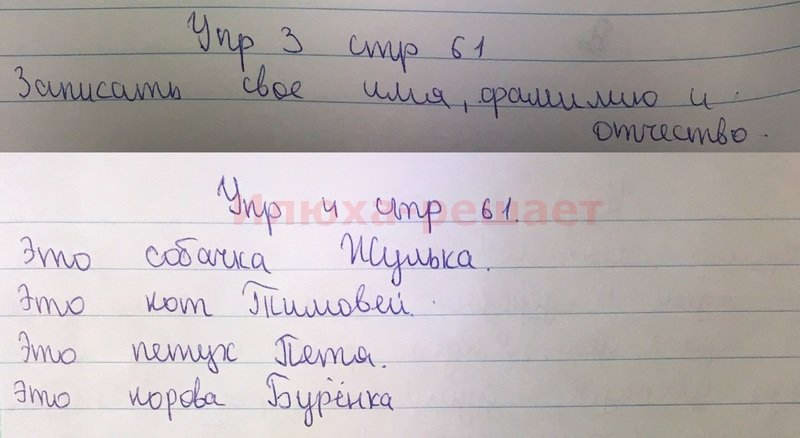 Упр 3 стр 61
Записать свое имя, фамилию и
отчество.
Упр 4 стр 61.
Илюха решает
Это собачка Жулька.
Это кот Тимовей.
Это петух Петя.
Это корова Бурёнка